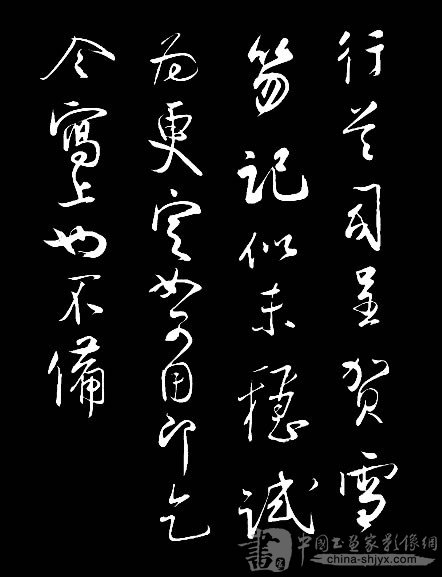 行首司呈賀雪
笏記似未穩試
為更定如可用即乞
令寫上也不備
中国书画家影像網
china-shjyx.com